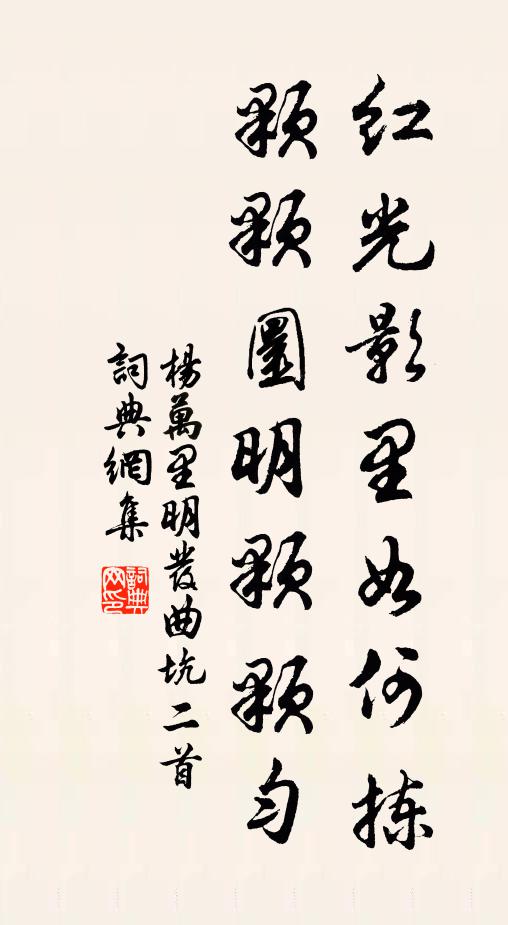 红光影里如何拣
颗颗圆明颗颗匀
楊萬里明發曲坑二首
詞典網集
詞典網印